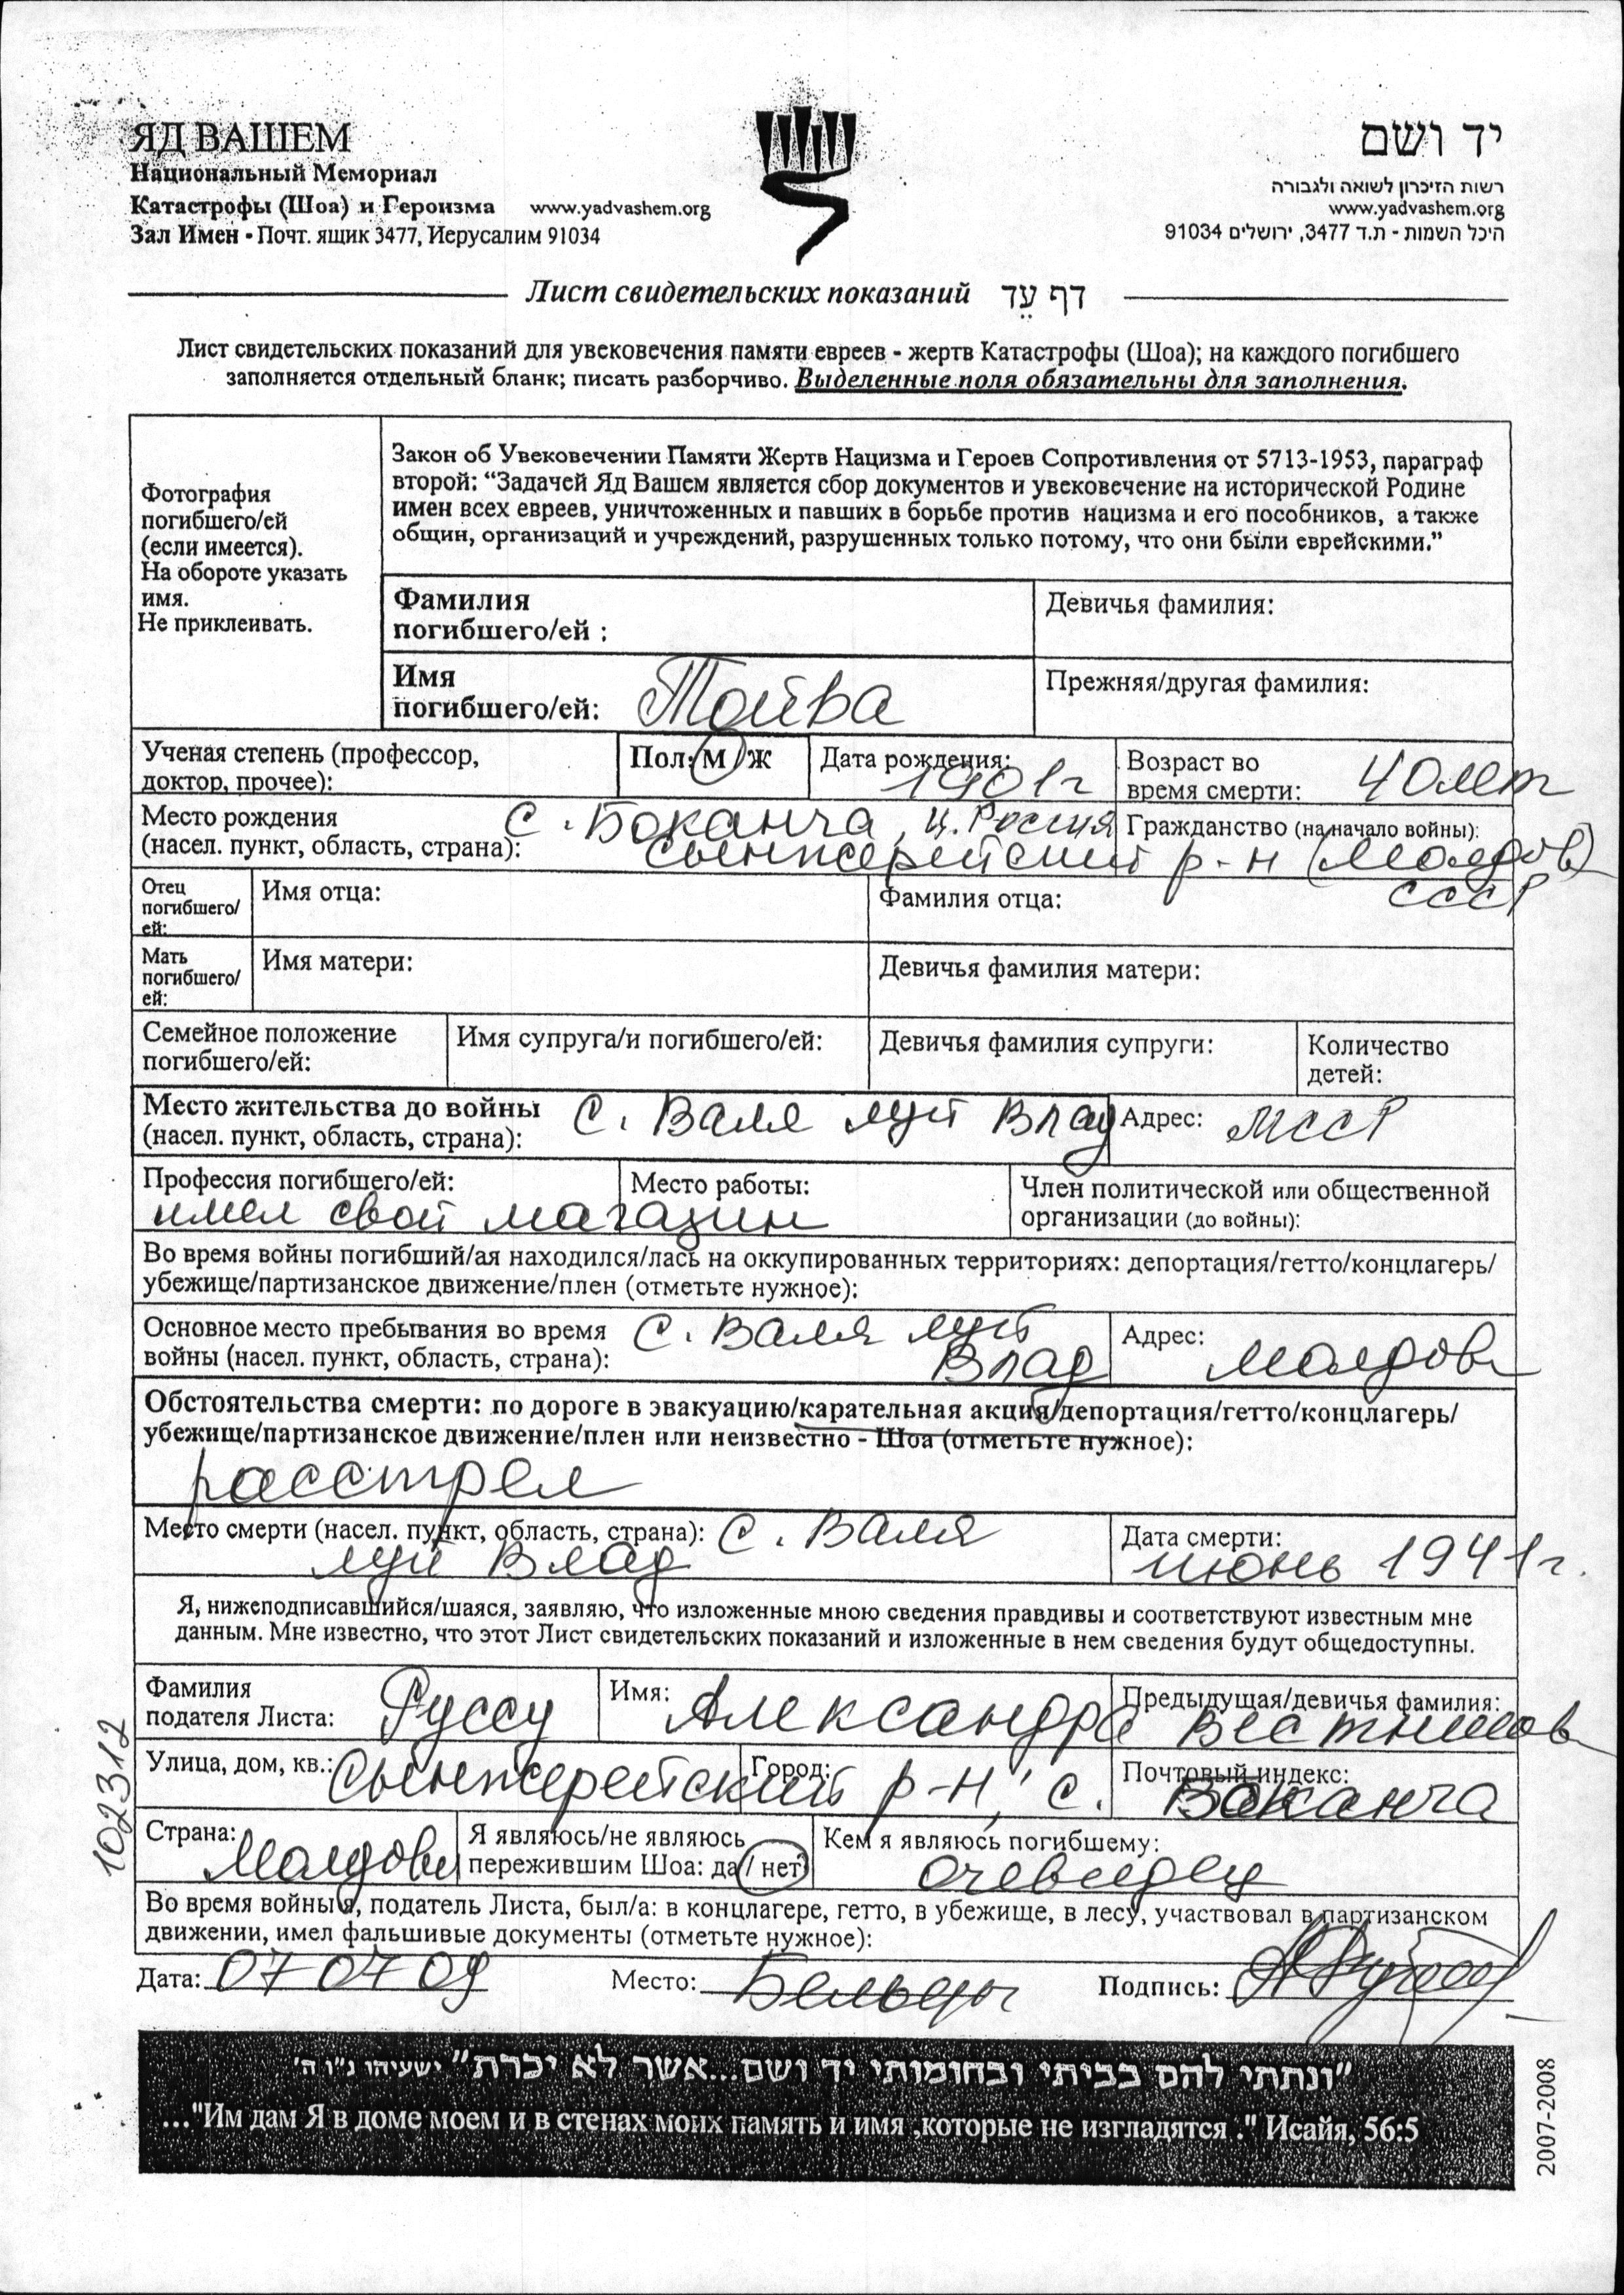 ЯД ВАШЕМ
Национальный Мемориал
Катастрофы (Шоа) и Героизма www.yadvashem.org
Зал Имен - Почт. ящик 3477, Иерусалим 91034
יד ושם
רשות הזיכרון לשואה ולגבורה
www.yadvashem.org
היכל השמות - ת.ד 3477, ירושלים 91034
Лист свидетельских показаний דף עֵד
Лист свидетельских показаний для увековечения памяти евреев - жертв Катастрофы (Шоа); на каждого погибшего
заполняется отдельный бланк; писать разборчиво. Выделенные поля обязательны для заполнения.
Фотография
погибшего/ей
(если имеется).
На обороте указать
имя.
Не приклеивать.
Закон об Увековечении Памяти Жертв Нацизма и Героев Сопротивления от 5713-1953, параграф
второй: “Задачей Яд Вашем является сбор документов и увековечение на исторической Родине
имен всех евреев, уничтоженных и павших в борьбе против нацизма и его пособников, а также
общин, организаций и учреждений, разрушенных только потому, что они были еврейскими.”
Фамилия
погибшего/ей :
Девичья фамилия:
Имя
погибшего/ей: Тойва
Прежняя/другая фамилия:
Ученая степень (профессор,
доктор, прочее):
Пол: М/Ж
Дата рождения:
1901г
Возраст во
время смерти: 40 лет
Место рождения с. Боканча, ц. Россия
(насел. пункт, область, страна): Сынжерейский р-н (Молдов)
Гражданство (на начало войны):
СССР
Отец
погибшего/
ей:
Имя отца:
Фамилия отца:
Мать
погибшего/
ей:
Имя матери:
Девичья фамилия матери:
Семейное положение
погибшего/ей:
Имя супруга/и погибшего/ей:
Девичья фамилия супруги:
Количество
детей:
Место жительства до войны с. Валя луй Влад
(насел. пункт, область, страна):
Адрес: МССР
Профессия погибшего/ей:
имел свой магазин
Место работы:
Член политической или общественной
организации (до войны):
Во время войны погибший/ая находился/лась на оккупированных территориях: депортация/гетто/концлагерь/
убежище/партизанское движение/плен (отметьте нужное):
Основное место пребывания во время с. Валя луй
войны (насел. пункт, область, страна): Влад
Адрес: Молдов
Обстоятельства смерти: по дороге в эвакуацию/карательная акция/депортация/гетто/концлагерь/
убежище/партизанское движение/плен или неизвестно - Шоа (отметьте нужное):
расстрел
Место смерти (насел. пункт, область, страна): с. Валя
луй Влад
Дата смерти:
июнь 1941г.
Я, нижеподписавшийся/шаяся, заявляю, что изложенные мною сведения правдивы и соответствуют известным мне
данным. Мне известно, что этот Лист свидетельских показаний и изложенные в нем сведения будут общедоступны.
Фамилия
подателя Листа: Руссу
Имя: Александра
Предыдущая/девичья фамилия:
Улица, дом, кв.: Город: Почтовый индекс:
Сынжерейский р-н, с. Боканча
Страна:
Молдова
Я являюсь/не являюсь
пережившим Шоа: да / нет
Кем я являюсь погибшему:
очевидец
Во время войны я, податель Листа, был/а: в концлагере, гетто, в убежище, в лесу, участвовал в партизанском
движении, имел фальшивые документы (отметьте нужное):
Дата: 07 07 09 Место: Бельцы Подпись:
102312
"ונתתי להם בביתי ובחומותי יד ושם...אשר לא יכרת" ישעיהו נ"ו ה'
..."Им дам Я в доме моем и в стенах моих память и имя ,которые не изгладятся ." Исайя, 56:5
2007-2008